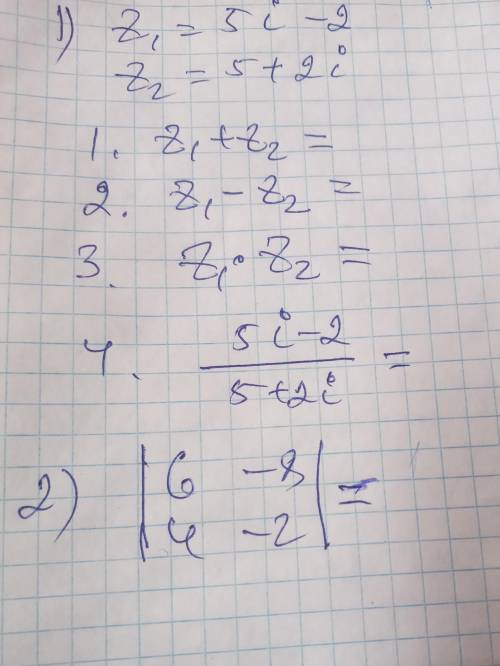 1) z₁ = 5i - 2
z₂ = 5 + 2i
1. z₁ + z₂ =
2. z₁ - z₂ =
3. z₁ · z₂ =
4. (5i - 2)/(5 + 2i) =
2) |6 -8|
|4 -2| =